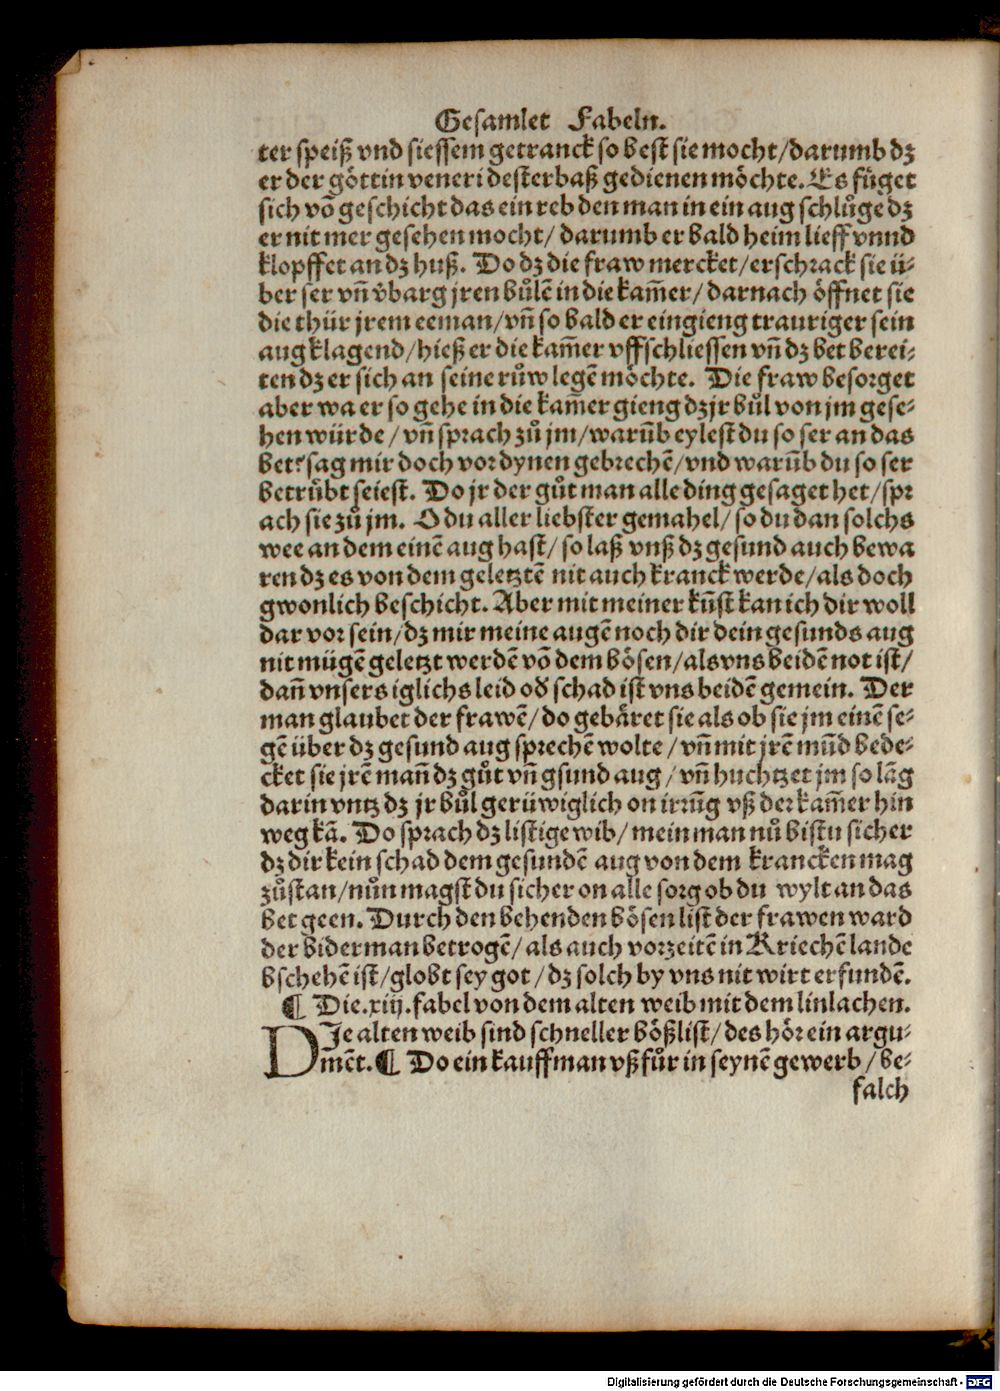 Gesamlet Fabeln.
ter speiß vnd siessem getranck so best sie mocht/darumb dz
er der göttin veneri desterbaß gedienen möchte. Es füget
sich võ geschicht das ein reb den man in ein aug schlůge dz
er nit mer gesehen mocht/ darumb er bald heim lieff vnnd
klopffet an dz huß. Do dz die fraw mercket/erschrack sie ü⸗
ber ser vñ v̈barg jren bůlē in die kam̄er/darnach öffnet sie
die thür jrem eeman/vñ so bald er eingieng trauriger sein
aug klagend/hieß er die kam̄er vffschliessen vñ dz bet berei⸗
ten dz er sich an seine růw legē möchte. Die fraw besorget
aber wa er so gehe in die kam̄er gieng dz jr bůl von jm gese⸗
hen würde/vñ sprach zů jm/warūb eylest du so ser an das
bet? sag mir doch vor dynen gebrechē/vnd warūb du so ser
betrůbt seiest. Do jr der gůt man alle ding gesaget het/spr
ach sie zů jm. O du aller liebster gemahel/so du dan solchs
wee an dem einē aug hast/so laß vnß dz gesund auch bewa
ren dz es von dem geletztē nit auch kranck werde/als doch
gwonlich beschicht. Aber mit meiner kūst kan ich dir woll
dar vor sein/dz mir meine augē noch dir dein gesunds aug
nit mügē geletzt werdē võ dem bösen/als vns beidē not ist/
dañ vnsers iglichs leid oď schad ist vns beidē gemein. Der
man glaubet der frawē/do gebäret sie als ob sie jm einē se⸗
gē über dz gesund aug sprechē wolte/vñ mit jrē mūd bede⸗
cket sie jrē mañ dz gůt vñ gsund aug/vñ huchtzet jm so lāg
darin vntz dz jr bůl gerüwiglich on irrūg vß der kam̄er hin
weg kā. Do sprach dz listige wib/mein man nů bistu sicher
dz dir kein schad dem gesundē aug von dem krancken mag
zůstan/nůn magst du sicher on alle sorg ob du wylt an das
bet geen. Durch den behenden bösen list der frawen ward
der biderman betrogē/als auch vorzeitē in Kriechē lande
bschehē ist/globt sey got/dz solch by vns nit wirt erfundē.
¶ Die.xiij.fabel von dem alten weib mit dem linlachen.
DIe alten weib sind schneller bößlist/des hör ein argu⸗
mēt.¶ Do ein kauffman vß fůr in seynē gewerb/be⸗
falch
Digitalisierung gefördert durch die Deutsche Forschungsgemeinschaft - DFG